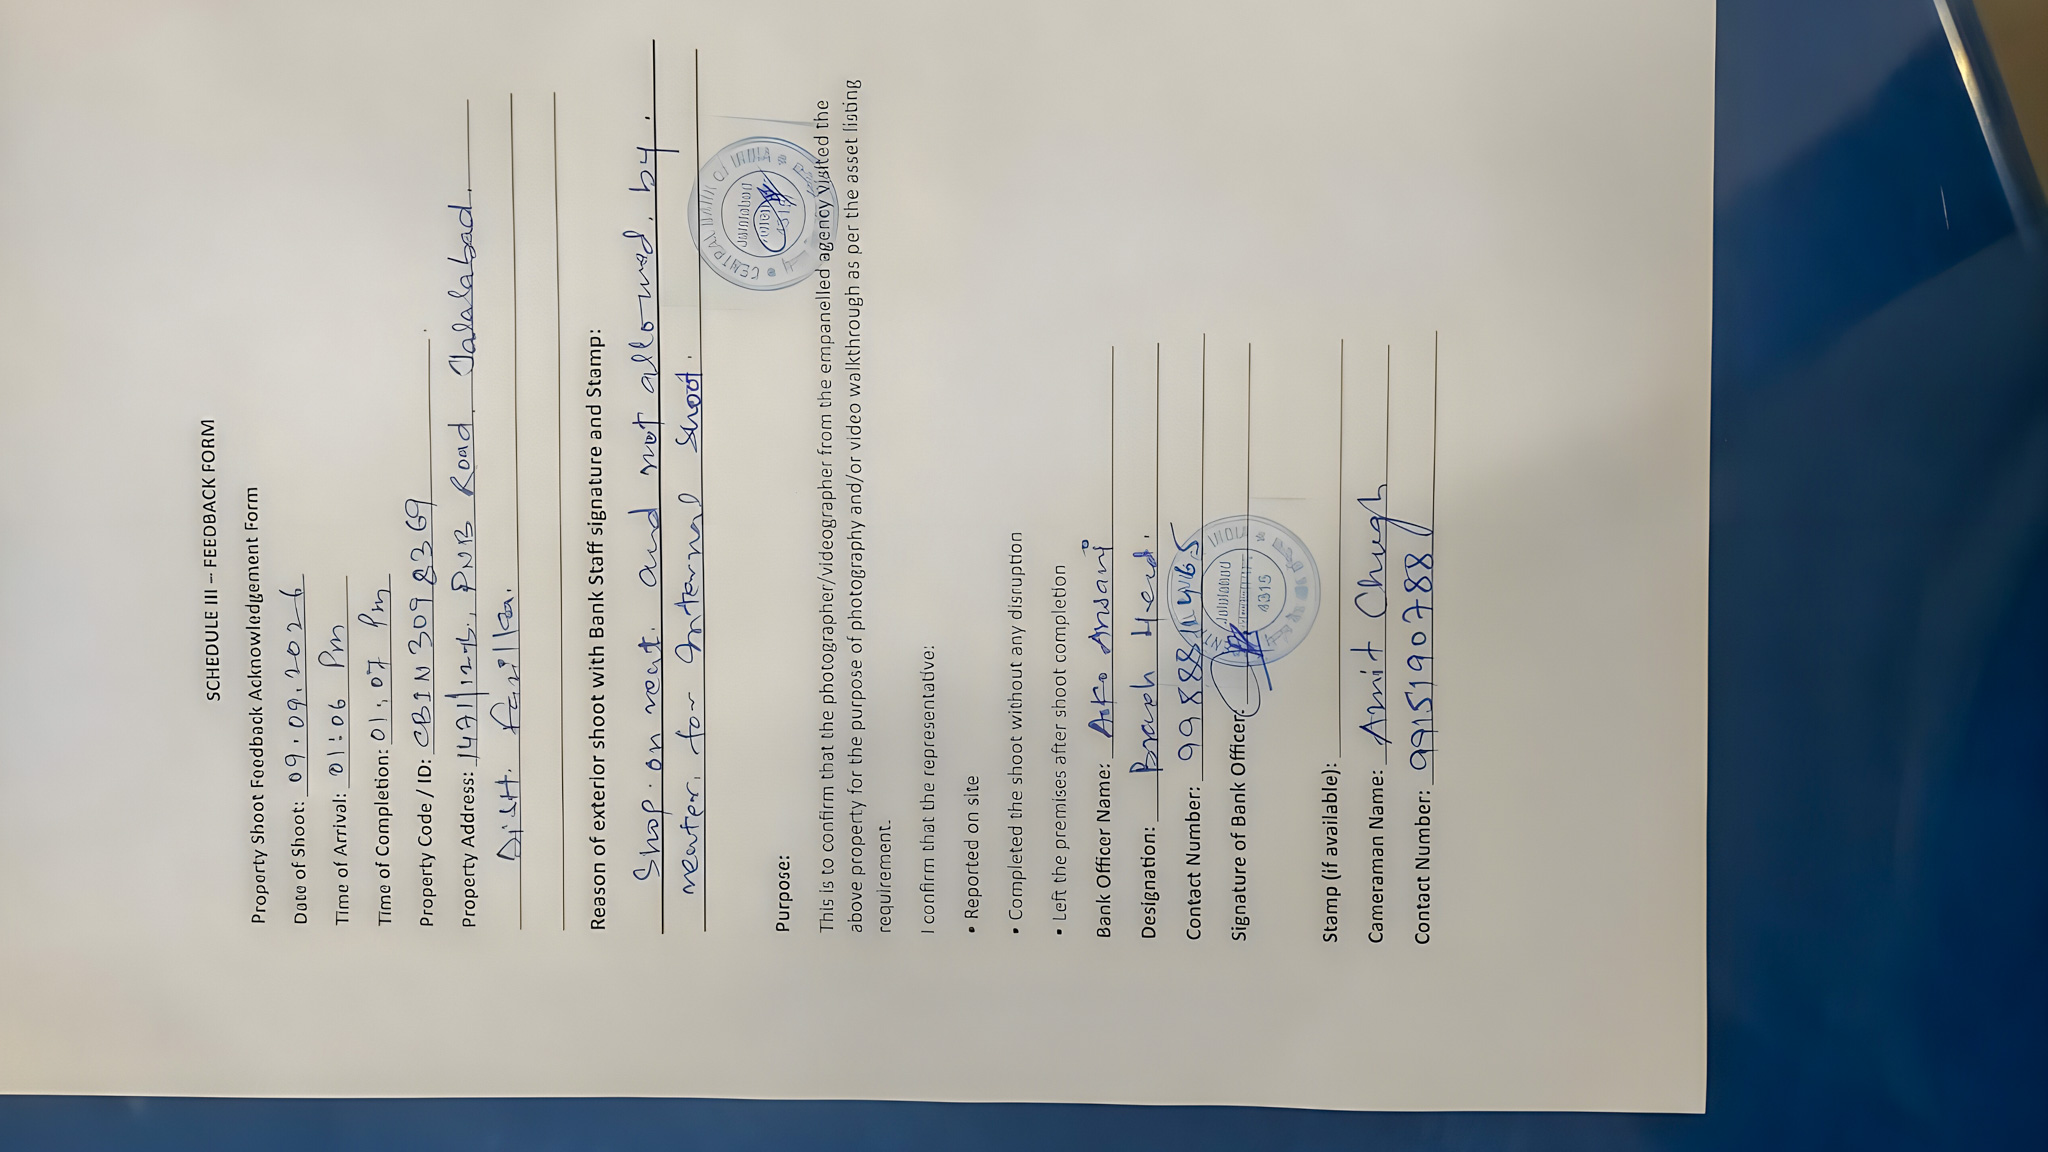 SCHEDULE III – FEEDBACK FORM
Property Shoot Feedback Acknowledgement Form
Date of Shoot: 09.09.2026
Time of Arrival: 01:06 Pm
Time of Completion: 01:07 Pm
Property Code / ID: CBIN 309 8369
Property Address: PNB Road. Jalalabad.
Distt. Fazilka.
Reason of exterior shoot with Bank Staff signature and Stamp:
Shop. on rent. and not allowed. by.
renter. for Internal shoot.
CENTRAL BANK OF INDIA
Purpose:
This is to confirm that the photographer/videographer from the empanelled agency visited the
above property for the purpose of photography and/or video walkthrough as per the asset listing
requirement.
I confirm that the representative:
• Reported on site
• Completed the shoot without any disruption
• Left the premises after shoot completion
Bank Officer Name: Ansari
Designation: Branch Head.
Contact Number:
Signature of Bank Officer:
4315
Stamp (if available):
Cameraman Name: Amit Chugh
Contact Number: 9915190788